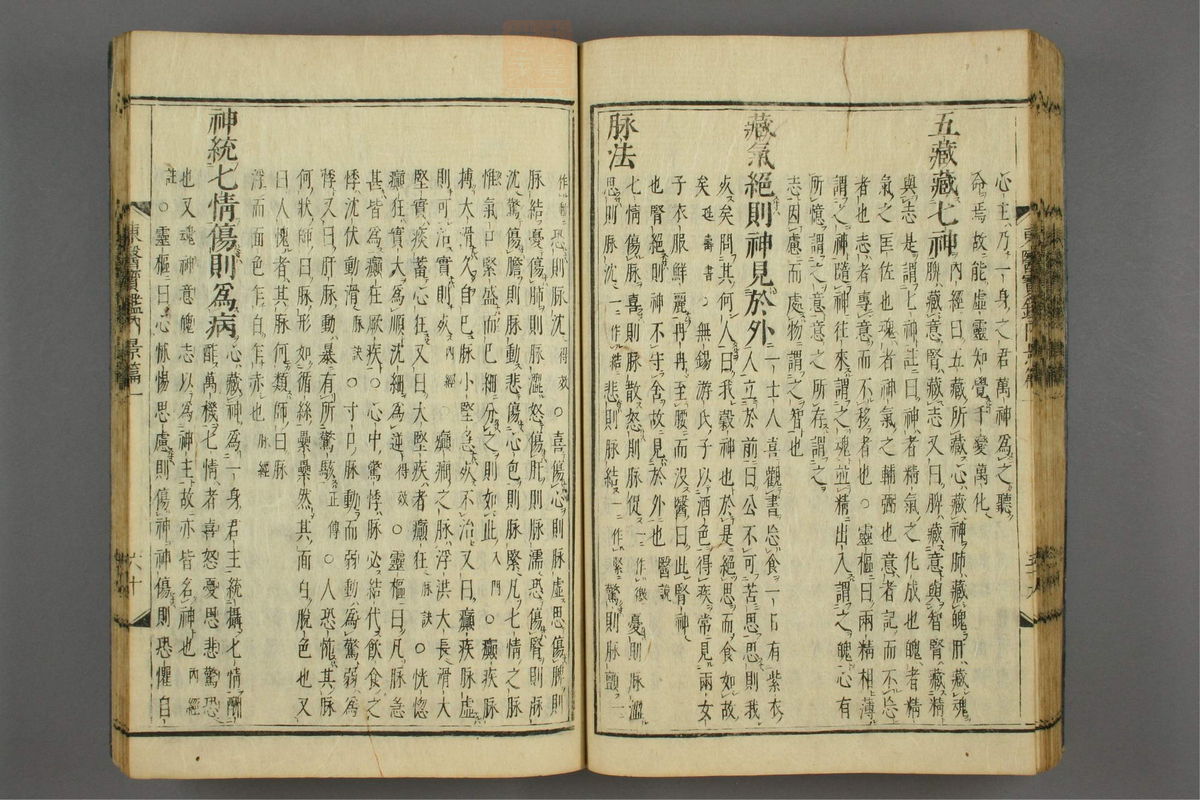 心主乃一身之君萬神爲之聽
命焉故能虛靈知覺千變萬化
五藏藏七神 內經曰五藏所藏心藏神肺藏魄肝藏魂
脾藏意腎藏志又曰脾藏意與智腎藏精
與志是謂七神註曰神者精氣之化成也魄者精
氣之匡佐也魂者神氣之輔弼也意者記而不忘
者也志者專意而不移者也○靈樞曰兩精相薄
謂之神隨神往來謂之魂並精出入謂之魄心有
所憶謂之意意之所存謂之
志因慮而處物謂之智也
藏氣絕則神見於外 一士人喜觀書忘食一日有紫衣
人立於前曰公不可苦思思則我
死矣問其何人曰我穀神也於是絕思而食如故
矣延壽書○無錫游氏子以酒色得疾常見兩女
子衣服鮮麗冉冉至腰而沒醫曰此腎神
也腎絕則神不守舍故見於外也醫說
脉法 七情傷脉喜則脉散怒則脉促一作激憂則脉澁一
思則脉沈一作結悲則脉結一作緊驚則脉顫一
恐則脉沈得效○喜傷心則脉虛思傷脾則
脉結憂傷肺則脉澁怒傷肝則脉濡恐傷腎則脉
沈驚傷膽則脉動悲傷心色則脉緊凡七情之脉
惟氣口緊盛而已細分之則如此入門○癲疾脉
搏大滑久自已脉小堅急死不治又曰癲疾脉虛
則可治實則死內經○癲癎之脉浮洪大長滑大
堅實痰蓄心狂又曰大堅疾者癲狂脉訣○恍惚
癲狂實大爲順沈細爲逆得效○靈樞曰凡脉急
甚皆爲癲狂厥疾○心中驚悸脉必結代飮食之
悸沈伏動滑脉訣○寸口脉動而弱動爲驚弱爲
悸又曰肝脉動暴有所驚駭正傳○人恐怖其脉
何狀師曰脉形如循絲纍纍然其面白脫色也又
曰人愧者其脉何類師曰脉
浮而面色乍白乍赤也脉經
神統七情傷則爲病 心藏神爲一身君主統攝七情酬
酢萬機七情者喜怒憂思悲驚恐
也又魂神意魄志以爲神主故亦皆名神也內經
註○靈樞曰心怵惕思慮則傷神神傷則恐懼自
東醫寶鑑內景篇一
六十